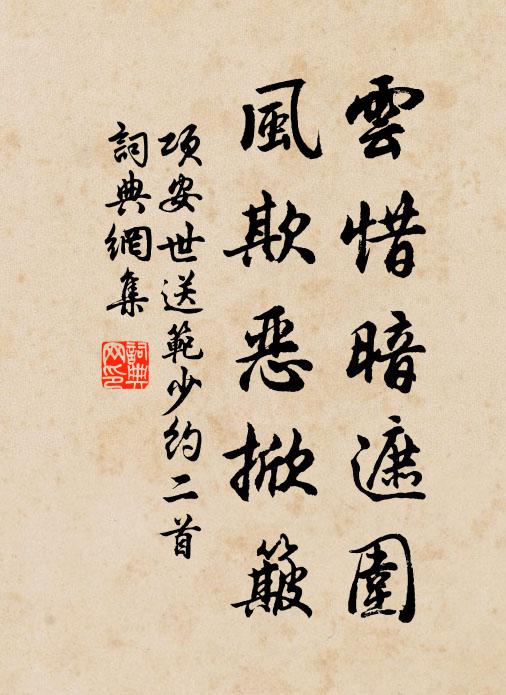 雲惜暗遮圍
風欺恶掀簸
项安世送範少约二首
詞典網集
詞典网印